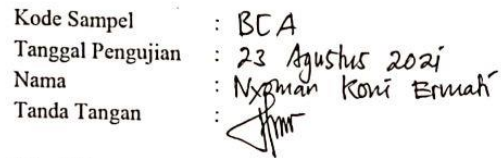 Kode Sampel : BCA
Tanggal Pengujian : 23 Agustus 2021
Nama : Nyoman Koni Ermati
Tanda Tangan :